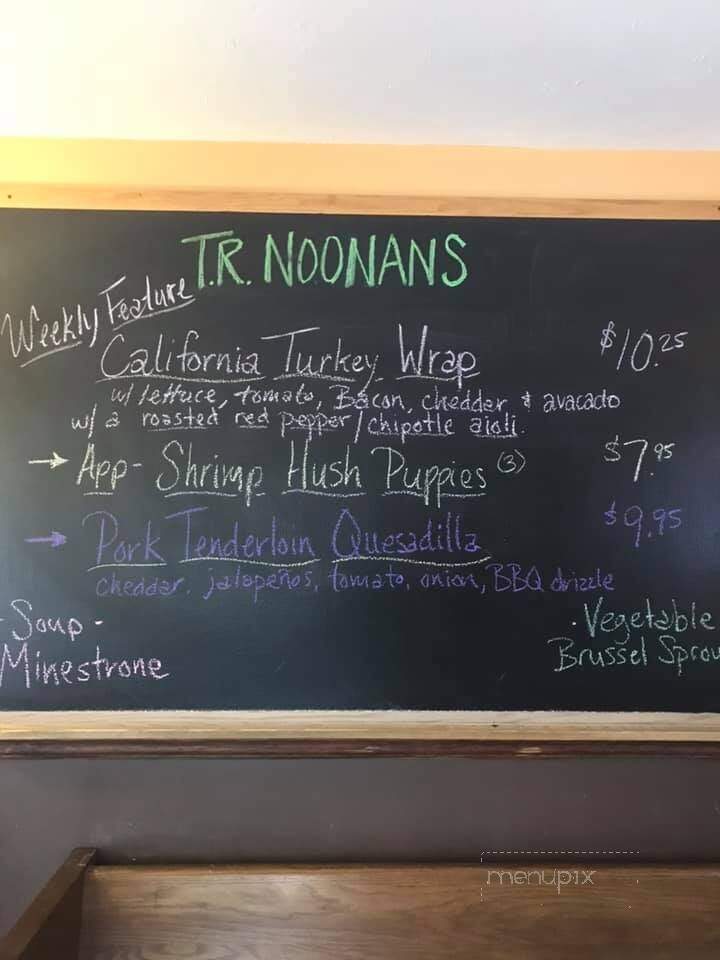 T.R. NOONANS
Weekly Feature
California Turkey Wrap $10.25
w/ lettuce, tomato, Bacon, cheddar, & avacado
w/ a roasted red pepper/chipotle aioli.
→ App- Shrimp Hush Puppies (3) $7.95
→ Pork Tenderloin Quesadilla $9.95
cheddar, jalapeños, tomato, onion, BBQ drizzle
- Soup -
Minestrone
· Vegetable
Brussel Sprou
menupix